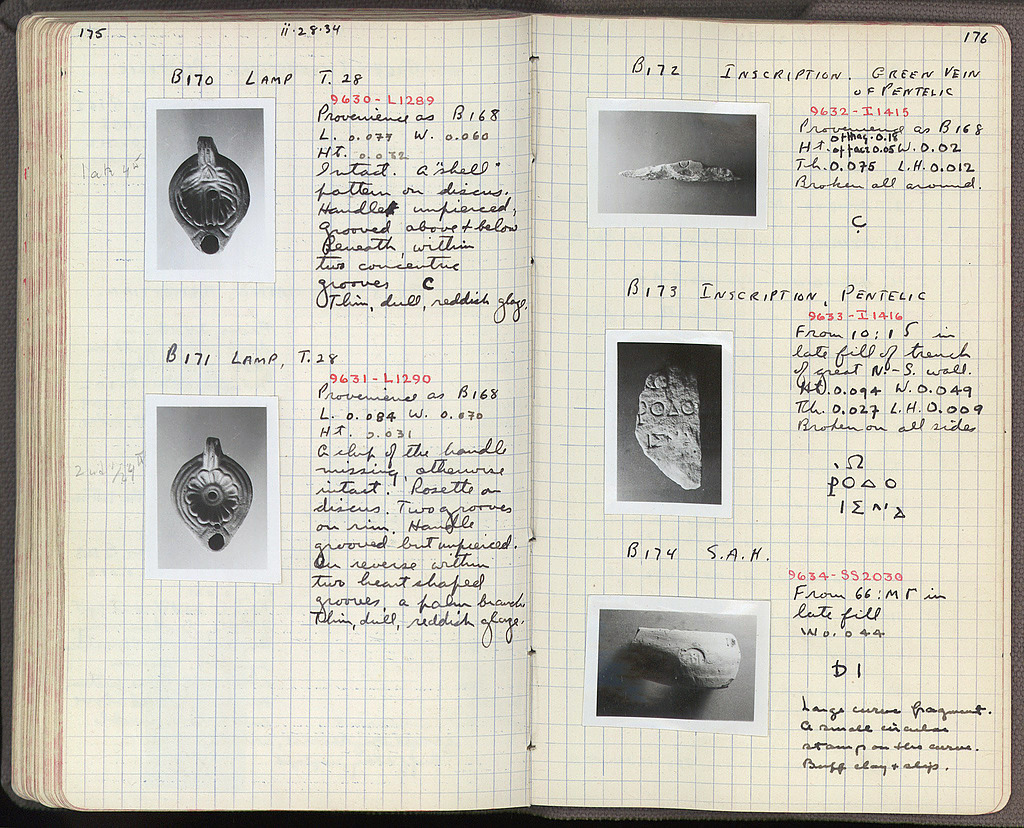 175
ii·28·34
B170 LAMP T. 28
9630 - L1289
Provenience as B168
L. 0.077 W. 0.060
Ht. 0.032
Intact. A "shell"
pattern on discus.
Handle unpierced,
grooved above + below
Beneath, within
two concentric
grooves C
Thin, dull, reddish glaze.
B171 LAMP, T. 28
9631 - L1290
Provenience as B168
L. 0.084 W. 0.070
Ht. 0.031
A chip of the handle
missing, otherwise
intact. Rosette on
discus. Two grooves
on rim. Handle
grooved but unpierced.
On reverse within
two heart shaped
grooves, a palm branch
Thin, dull, reddish glaze.
176
B172 INSCRIPTION. GREEN VEIN
OF PENTELIC
9632 - I1415
Provenience as B168
of frag. 0.18
Ht. of face 0.05 W. 0.02
Th. 0.075 L.H. 0.012
Broken all around.
B173 INSCRIPTION, PENTELIC
9633 - I1416
From 10:15 in
late fill of trench
of great N.-S. wall.
Ht. 0.094 W. 0.049
Th. 0.027 L.H. 0.009
Broken on all sides
Ω
ΡΟΔΟ
B174 S.A.H.
9634 - SS2030
From 66:ΜΓ in
late fill
W 0.044
Large curve fragment.
A small circular
stamp on the curve.
Buff clay + slip.